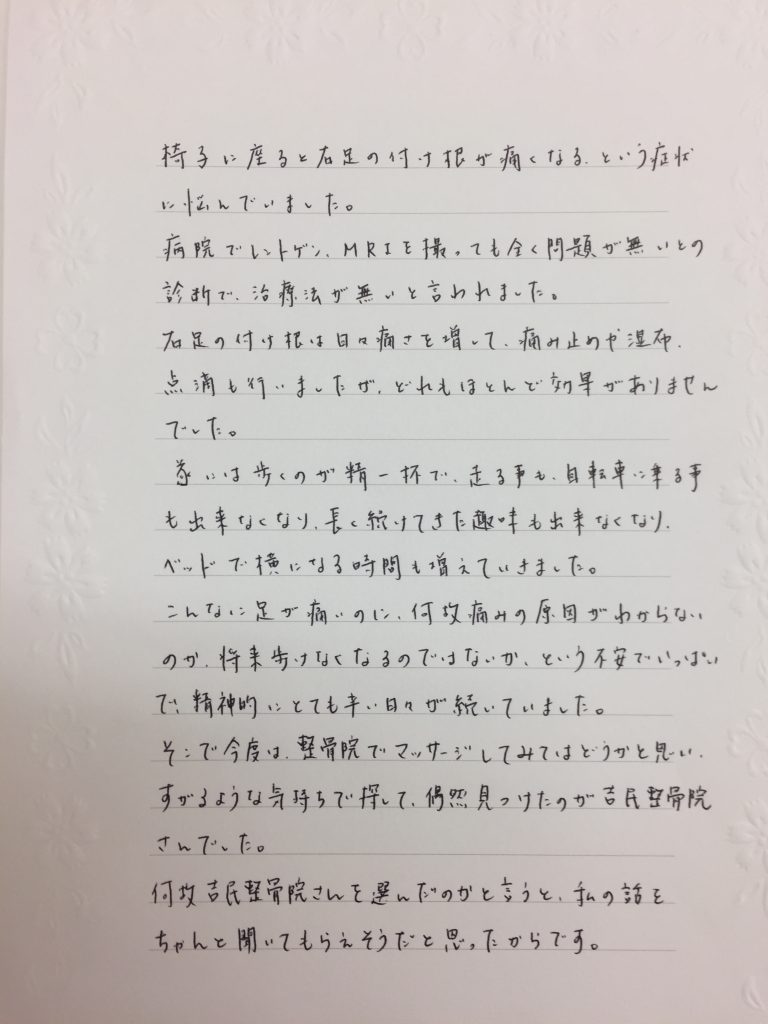 椅子に座ると右足の付け根が痛くなる、という症状
に悩んでいました。
病院でレントゲン、MRIを撮っても全く問題が無いとの
診断で、治療法が無いと言われました。
右足の付け根は日々痛さを増して、痛み止めや湿布、
点滴も行いましたが、どれもほとんど効果がありません
でした。
遂には歩くのが精一杯で、走る事も、自転車に乗る事
も出来なくなり、長く続けてきた趣味も出来なくなり、
ベッドで横になる時間も増えていきました。
こんなに足が痛いのに、何故痛みの原因がわからない
のか、将来歩けなくなるのではないか、という不安でいっぱい
で、精神的にとても辛い日々が続いていました。
そこで今度は、整骨院でマッサージしてみてはどうかと思い、
すがるような気持ちで探して、偶然見つけたのが吉民整骨院
さんでした。
何故吉民整骨院さんを選んだのかと言うと、私の話を
ちゃんと聞いてもらえそうだと思ったからです。